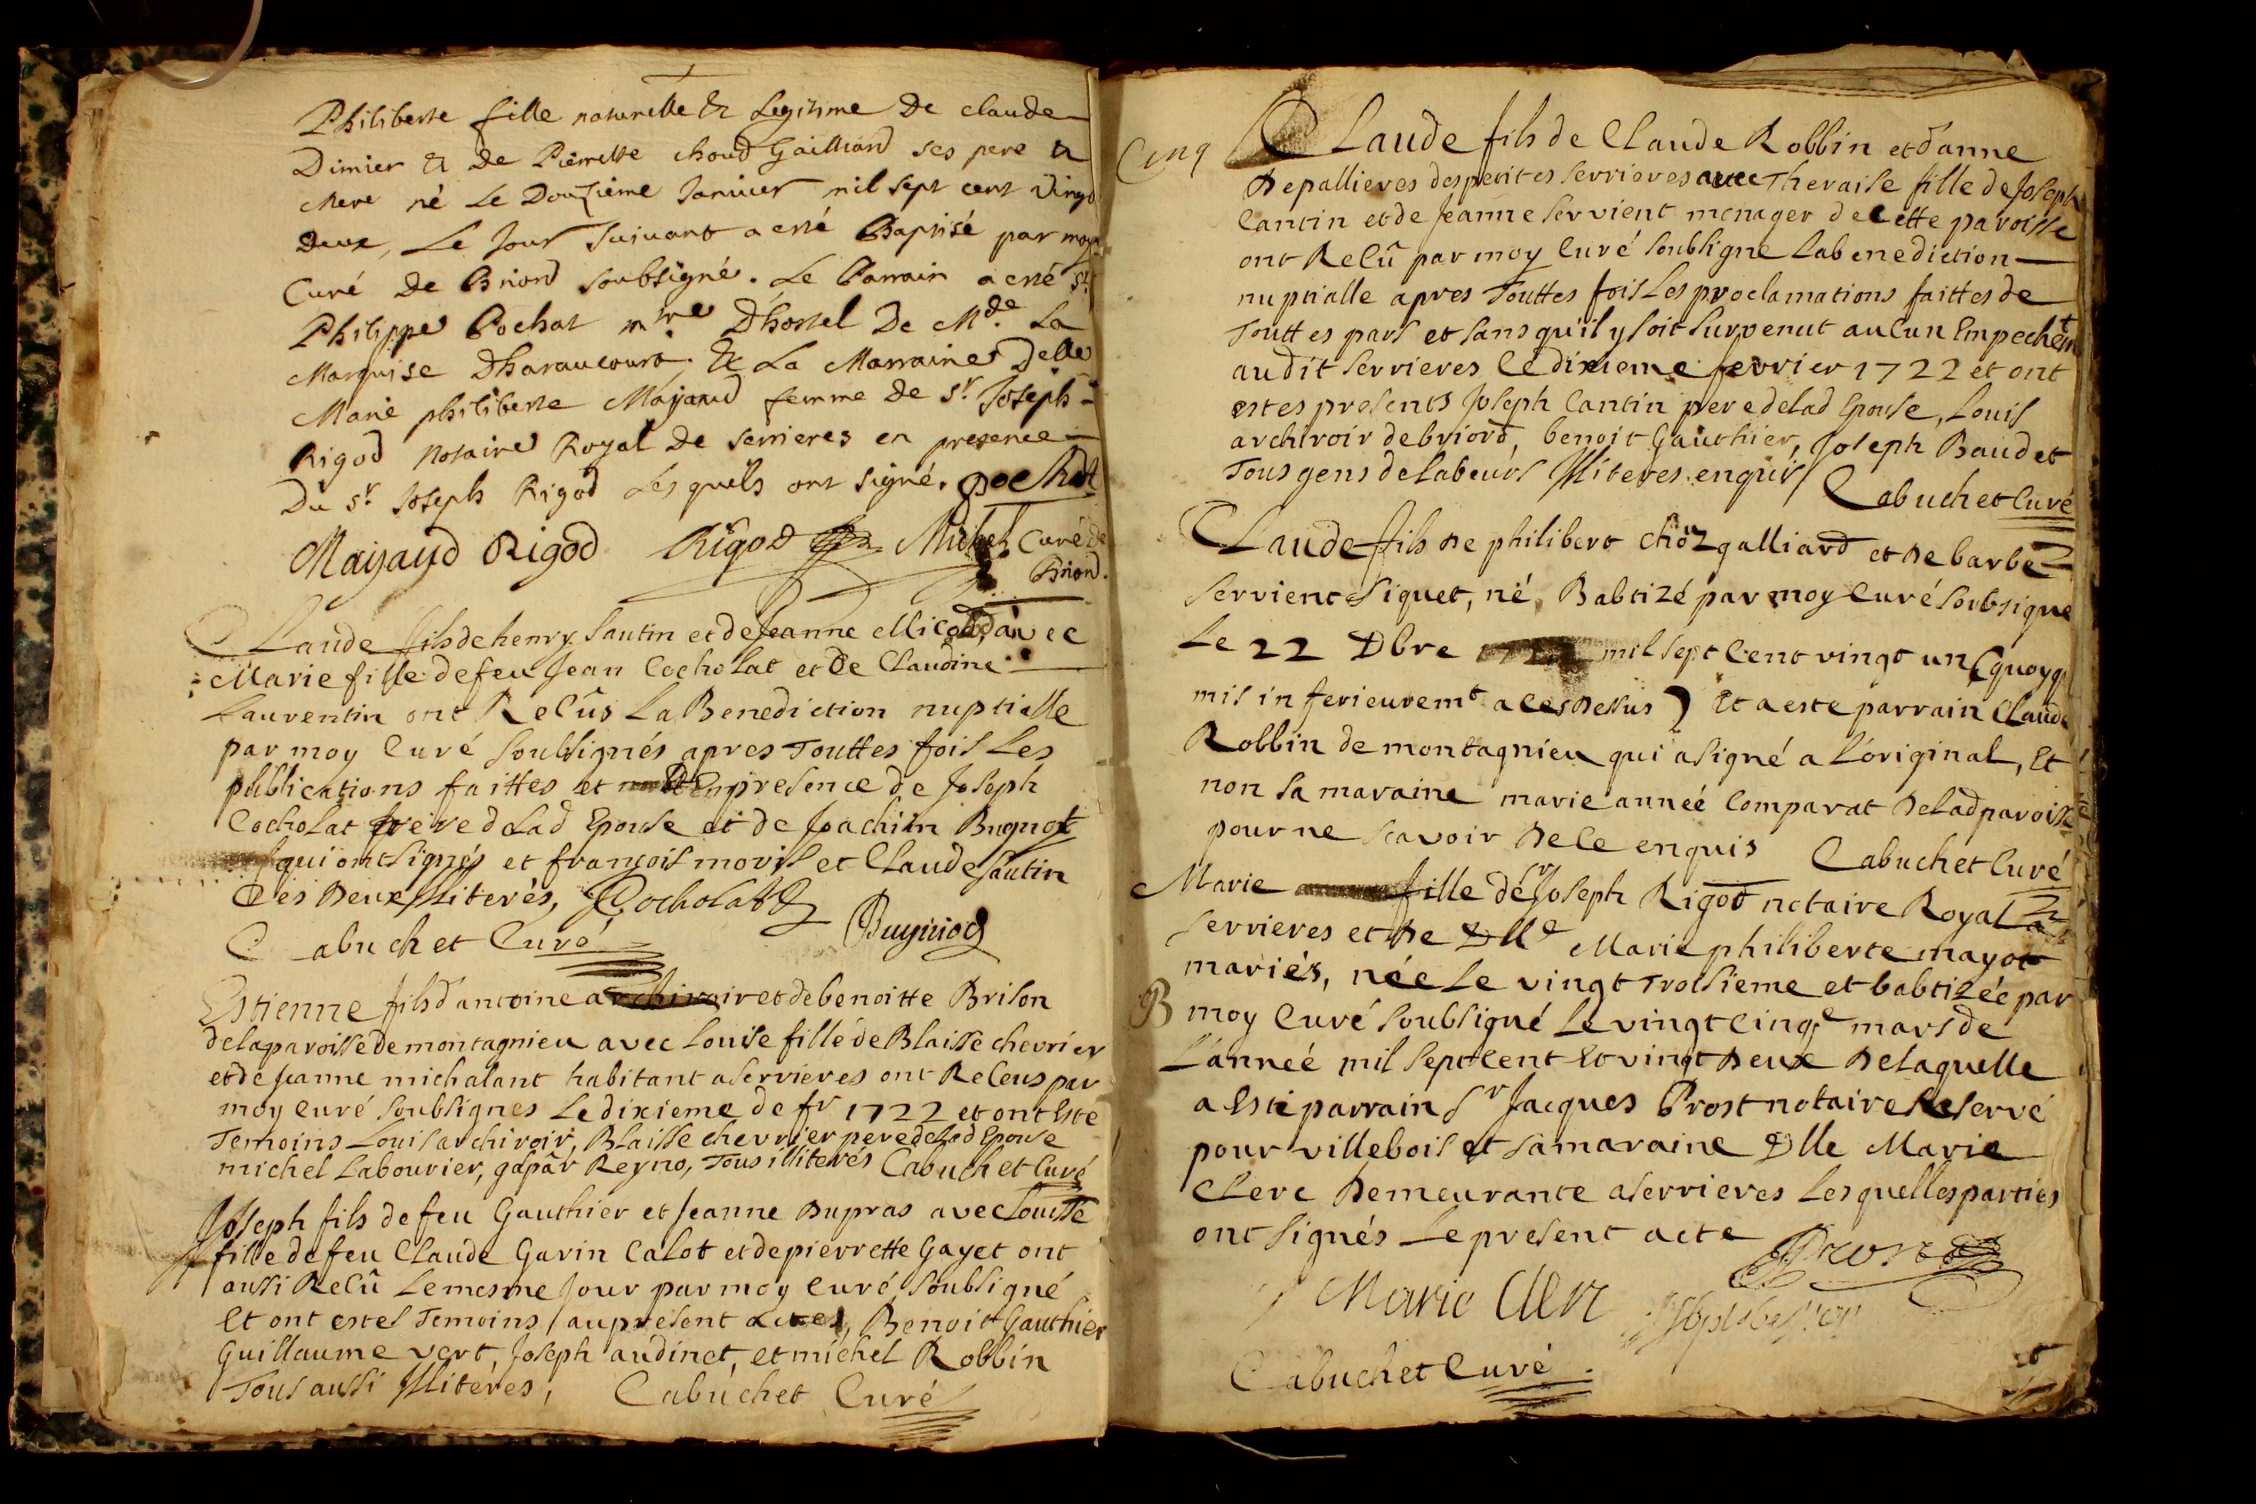 Philiberte fille naturelle & Legitime De claude
Dimier & de Pierrette choud Gailliard ses pere &
Mere né Le Douzieme Janvier mil sept cent vingt
deux, Le Jour suivant a esté Baptisé par moy
Curé De Briord soubsigné. Le Parrain a esté Sr
Philippe Pochat mtre D'hostel De Mde La
Marquise Dharaucourt & La Marraine Delle
Marie philiberte Mayaud femme de sr Joseph
Rigod Notaire Royal De serrieres en presence
Du sr Joseph Rigod Lesquels ont signé. Pochat
Mayaud Rigod Rigod Michel Curé de
Briord.
Claude fils de henry Sautin et de Jeanne Micoud avec
Marie fille de feu Jean Cocholat et De Claudine
Laurentin ont Reсûs La Benediction nuptialle
par moy Curé Soubsignés apres Touttes fois Les
publications faittes et En presence de Joseph
Cocholat frere d Lad Epouse et de Joachim Bugnot
qui ont signés et françois moris et Claude Sautin
Ces Deux Illiterés, Cocholat
Cabuchet Curé Buyniod
Estienne fils d'antoine archiroir et de benoitte Brison
de la paroisse de montagnieu avec Louise fille de Blaisse chevrier
et de Jeanne michalant habitant a Serrieres ont Receus par
moy curé Soubsignes Le dixieme de fr 1722 et ont Este
Temoins Louis archiroir, Blaisse chevrier pere de Lad Epouse
michel Labourier, gaspâr Reyno, Tous illiterés Cabuchet Curé
Joseph fils de feu Gauthier et Jeanne Dupras avec Louise
fille de feu Claude Garin Calot et de pierrette Gayet ont
aussi Reсû Le mesme Jour par moy curé Soubsigné
Et ont estes Temoins au present actes, Benoit Gauthier
Guillaume vert, Joseph audinet, et michel Robbin
Tous aussi Illiteres, Cabuchet Curé
Cinq
Claude fils de Claude Robbin et d'anne
Depallieres des petites serrieres avec Theraise fille de Joseph
Cantin et de Jeanne Servient menager de Cette paroisse
ont Reсû par moy Curé Soubsigne La benediction
nuptialle apres Touttes fois Les proclamations faittes de
Touttes pars et sans qu'il y soit survenut aucun Empechemt
audit Serrieres Le dixieme fevrier 1722 et ont
estes presents Joseph Cantin pere de Lad Epouse, Louis
archiroir de briord, benoit Gauthier, Joseph Baudet
Tous gens de labeurs Illiteres enquis Cabuchet Curé
Claude fils De philibert choüz galliard et De barbe
Servient Siquet, né, Babtizé par moy Curé Soubsigne
Le 22 Dbre mil sept Cent vingt un (quoyq
mis inferieuremt a Ces Dessus) Et a este parrain Claude
Robbin de montagnieu qui a signé a L'original, Et
non sa maraine marie anneé Comparat De Lad paroisse
pour ne scavoir De Ce enquis Cabuchet Curé
Marie fille de Sr Joseph Rigod notaire Royal
Serrieres et De Dlle Marie philiberte mayot
mariés, née Le vingt Troisieme et babtizée par
B moy Curé Soubsigné Le vingt cinqe mars de
L'anneé mil sept cent Et vingt Deux De Laquelle
a Esté parrain Sr Jacques Prost notaire Reservé
pour villebois et sa maraine Dlle Marie
Clerc Demeurante a Serrieres Lesquelles parties
ont signés Le present acte Prost
Marie Clerc
Cabuchet Curé